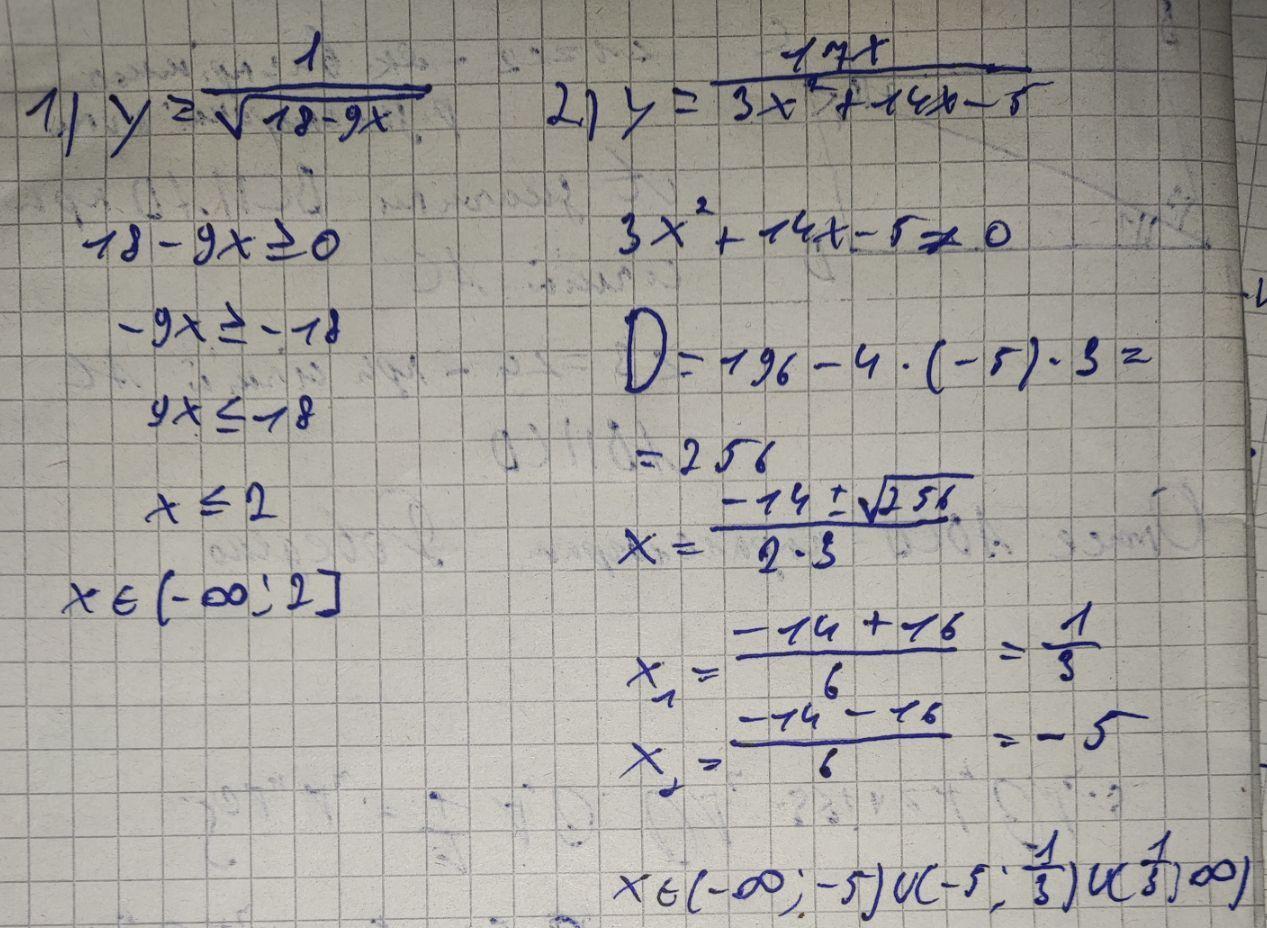 1) y = 1/√(18-9x)
18 - 9x ≥ 0
-9x ≥ -18
9x ≤ 18
x ≤ 2
x ∈ (-∞; 2]
2) y = 17x/(3x² + 14x - 5)
3x² + 14x - 5 ≠ 0
D = 196 - 4 · (-5) · 3 =
= 256
x = (-14 ± √256)/(2·3)
x₁ = (-14 + 16)/6 = 1/3
x₂ = (-14 - 16)/6 = -5
x ∈ (-∞; -5) ∪ (-5; 1/3) ∪ (1/3; ∞)